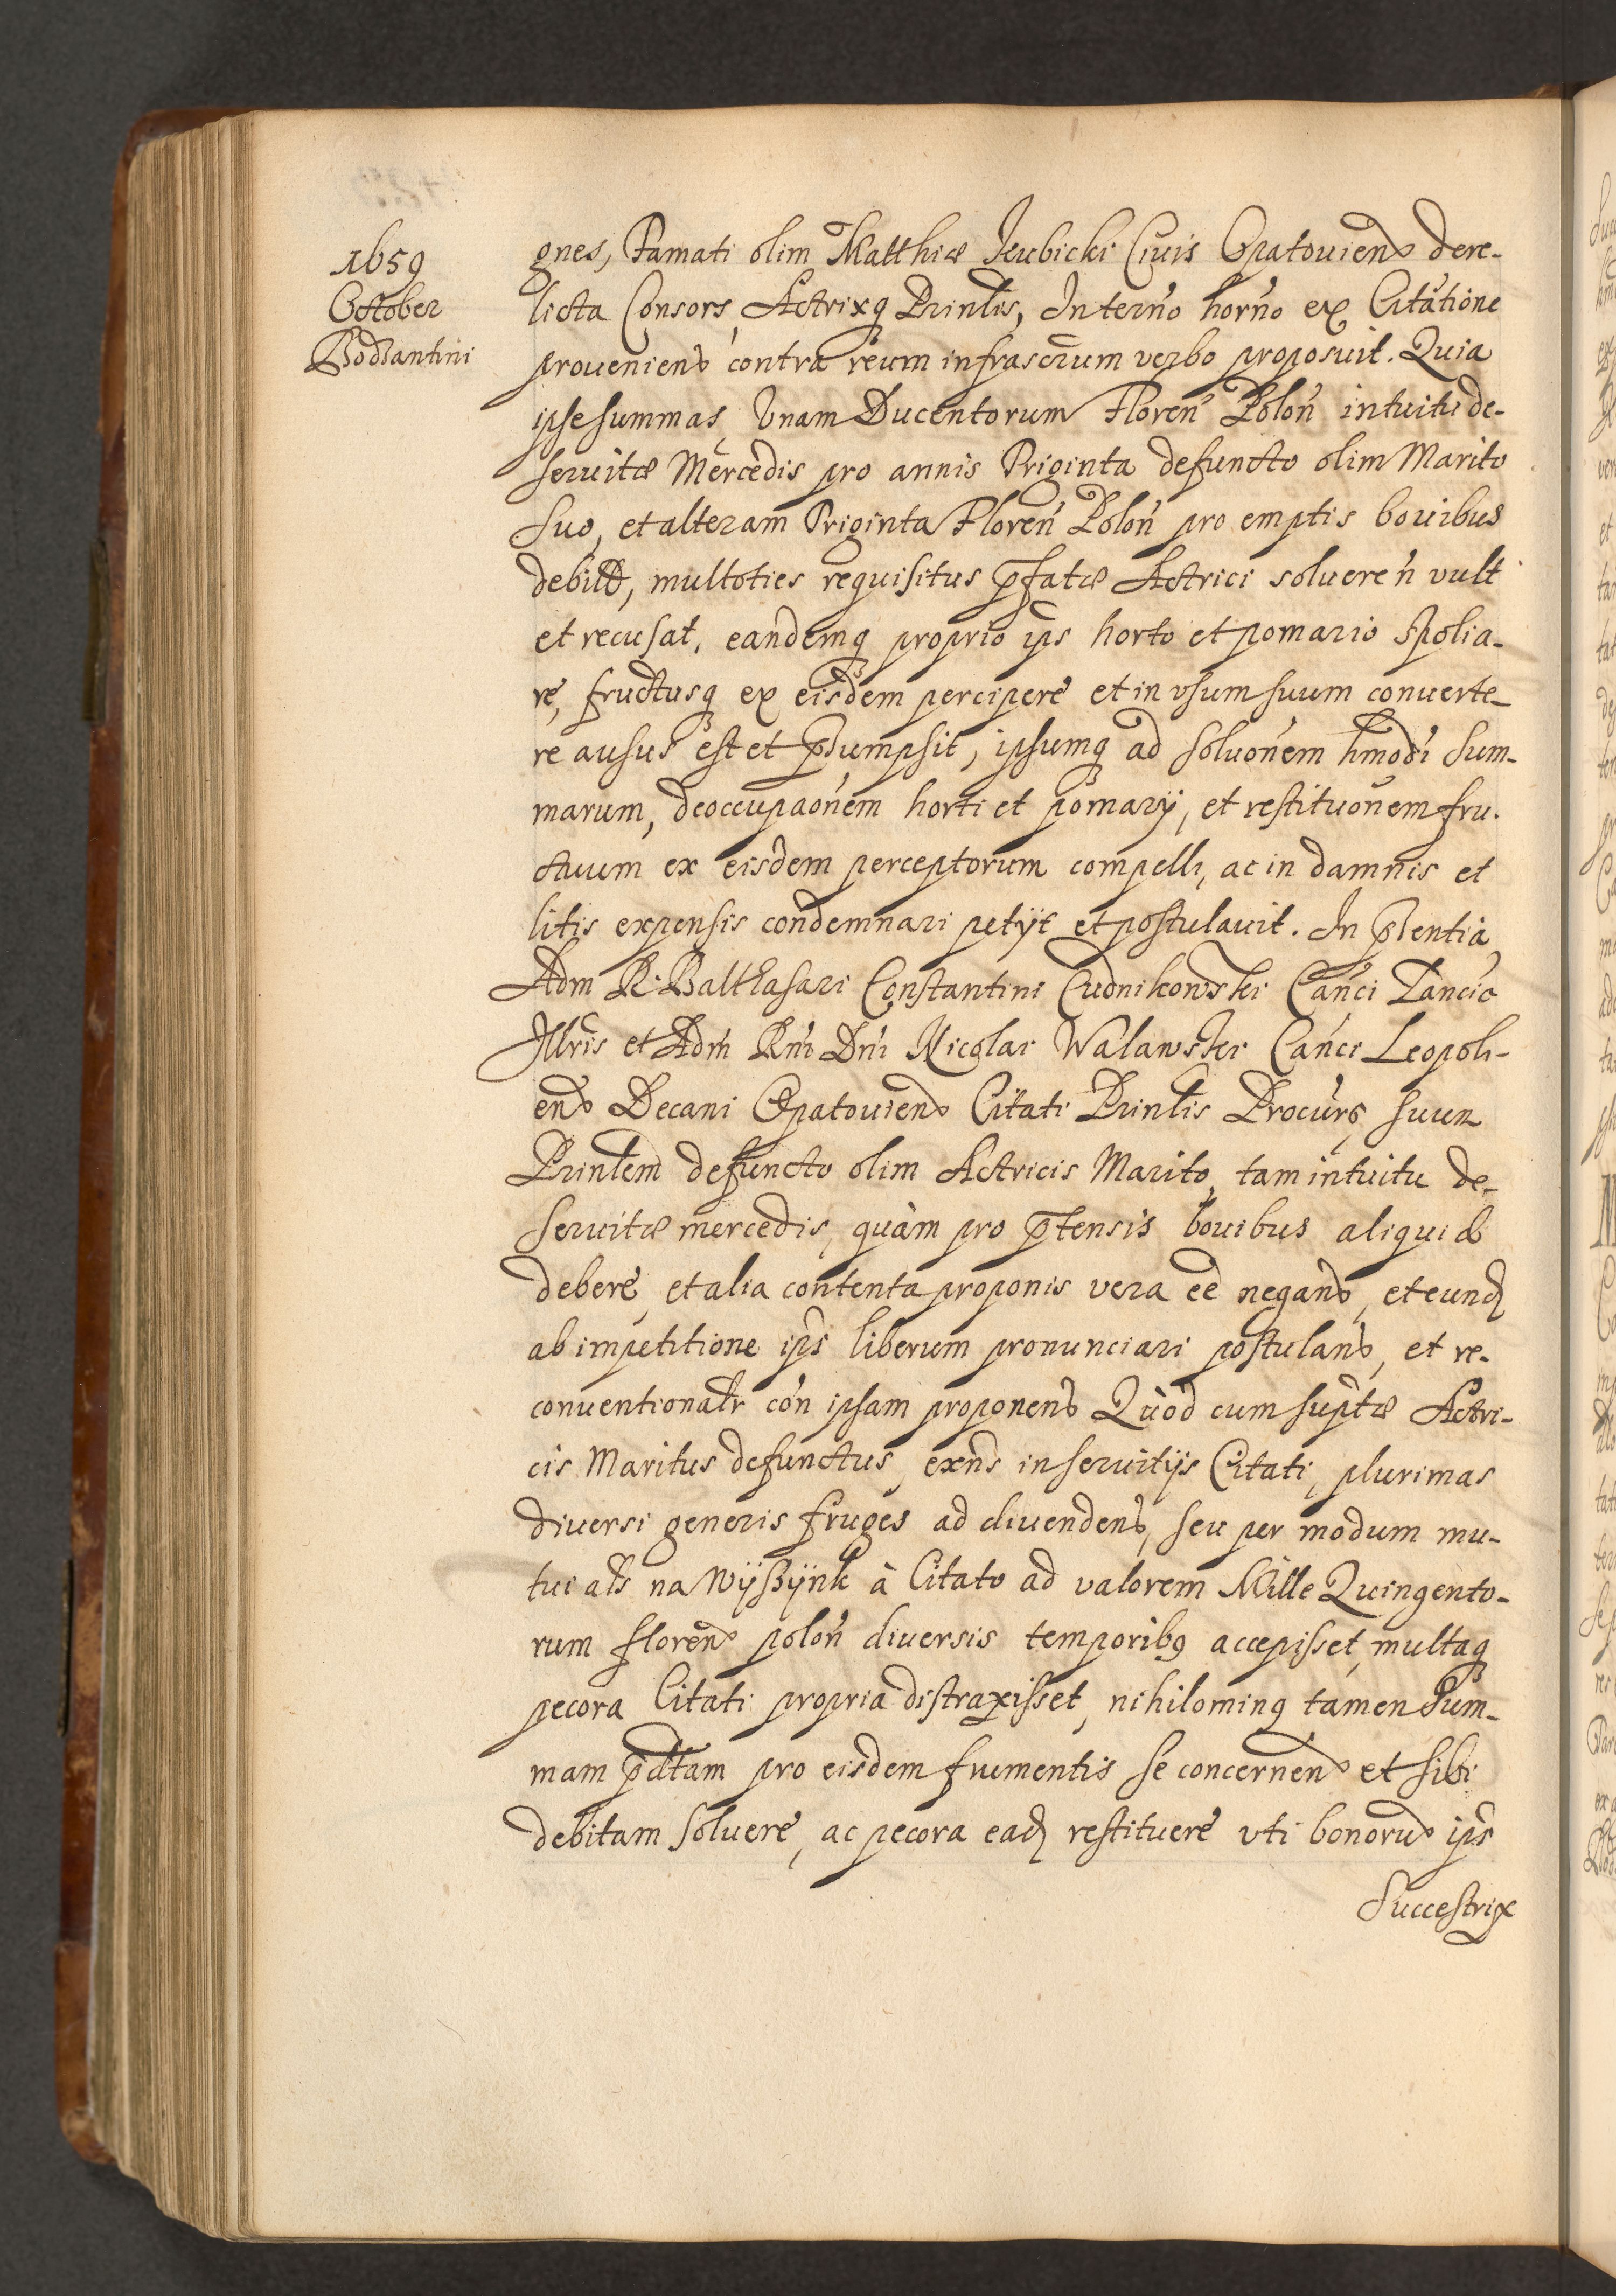 1659
October
Bodzantini
gnes, Famati olim Matthiæ Jeubicki Ciuis Opatouien dere-
licta Consors, Actrixq Prinlis, In terno horno ex Citatione
proueniens contra reum infrascrum verbo proposuit. Quia
ipse summas, Vnam Ducentorum Floren Polon intuitu de-
seruitæ Mercedis pro annis Triginta defuncto olim Marito
suo, et alteram Triginta Floren Polon pro emptis bouibus
debitt, multoties requisitus pfatæ Actrici soluere n vult
et recusat, eandemq proprio ips horto et pomario spolia-
re, fructusq ex eisdem percipere et in vsum suum conuerte-
re ausus est et psumpsit, ipsumq ad soluonem hmodi sum-
marum, deoccupaonem horti et pomarÿ, et restituonem fru-
ctuum ex eisdem perceptorum compelli, ac in damnis et
litis expensis condemnari petÿt et postulauit. In pntia
Adm R. Balthasari Constantini Cudnikowski Canci Lancic
Illris et Adm Rni Dni Nicolai Walawski Canci Leopoli-
en Decani Opatouien Citati Prinlis Procurs, suum
Prinlem defuncto olim Actricis Marito, tam intuitu de-
seruitæ mercedis, quàm pro ptensis bouibus aliquid
debere, et alia contenta proponis vera ee negans, et eund
ab impetitione ips liberum pronunciari postulans, et re-
conuentionalr con ipsam proponens Quòd cum suptæ Actri-
cis Maritus defunctus, exns in seruitÿs Citati, plurimas
diuersi generis fruges ad diuendens, seu per modum mu-
tui als na Wÿßÿnk à Citato ad valorem Mille Quingento-
rum floren polon diuersis temporibq accepisset, multaq
pecora Citati propria distraxisset, nihilominq tamen Sum-
mam pdttam pro eisdem frumentis se concernen et sibi
debitam soluere, ac pecora ead restituere vti bonoru ips
Succestrix